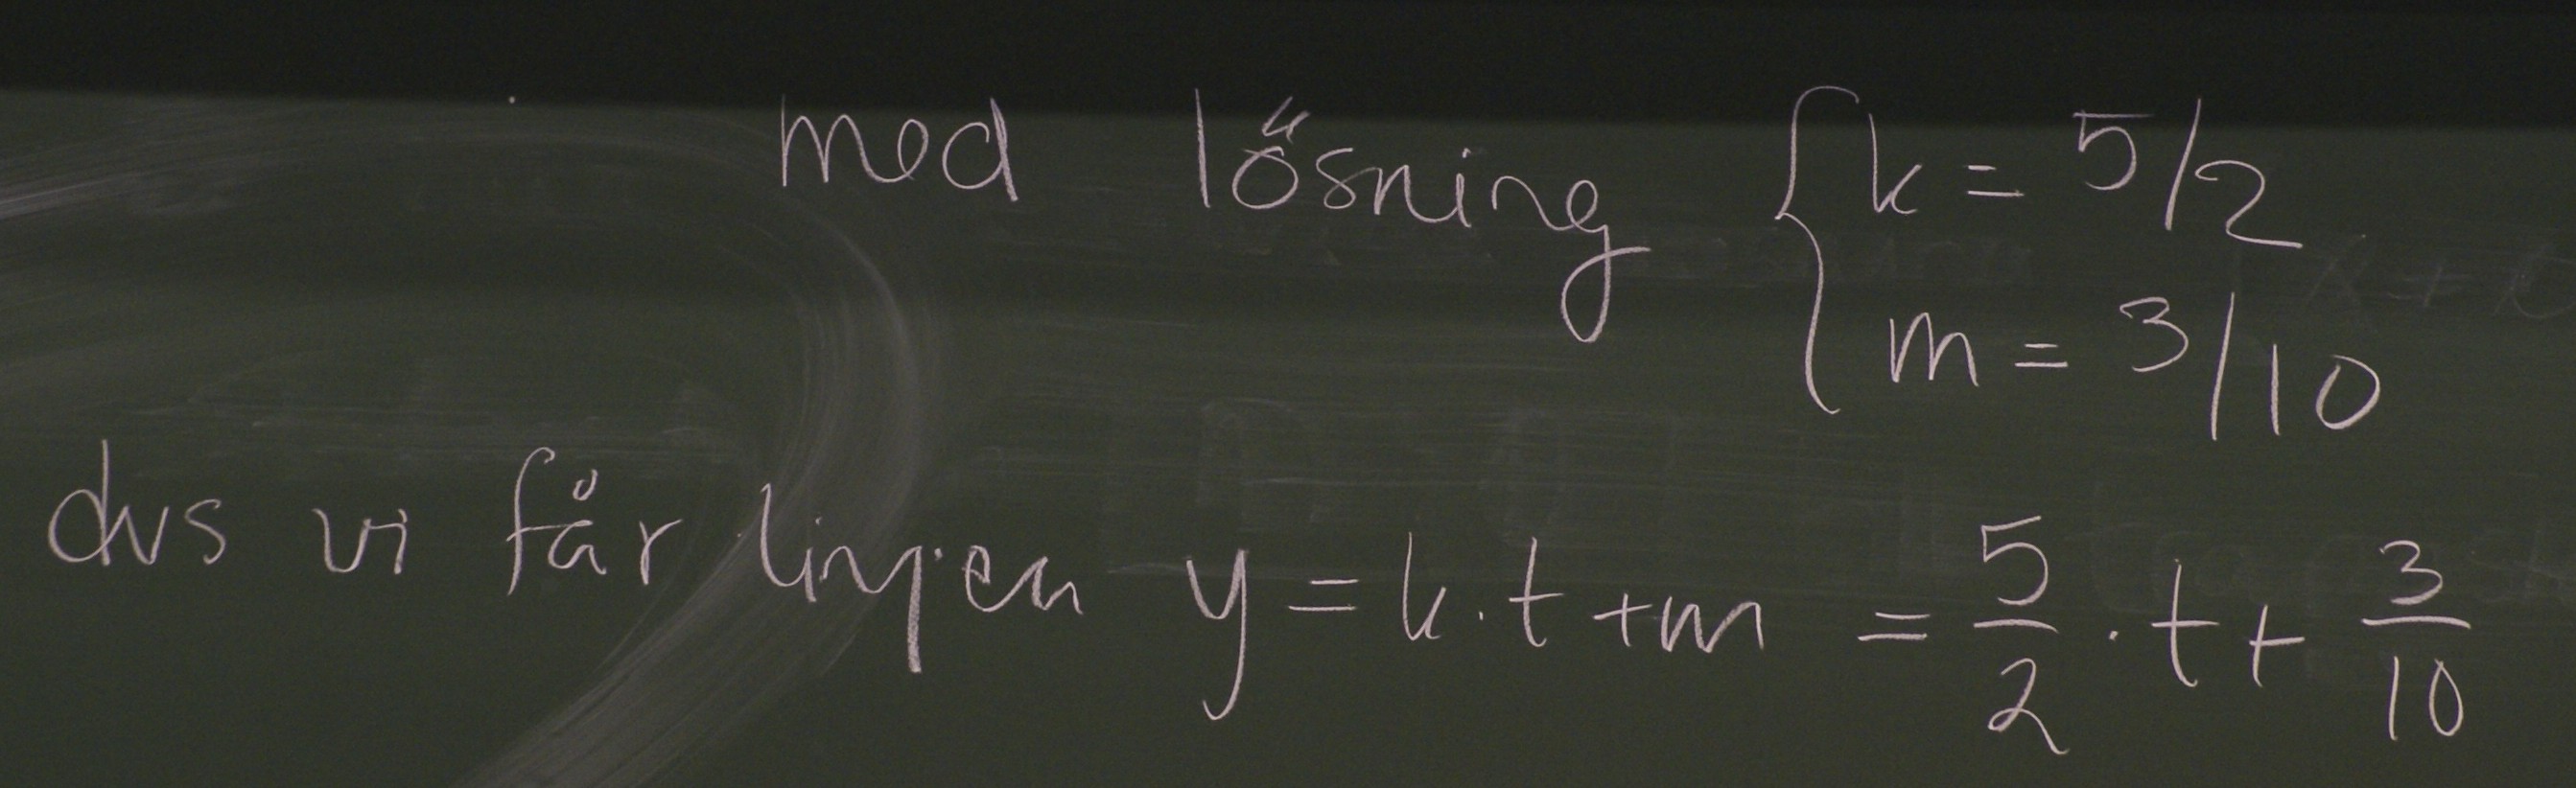 med lösning { k = 5/2
m = 3/10
dvs vi får linjen y = k·t + m = 5/2 · t + 3/10